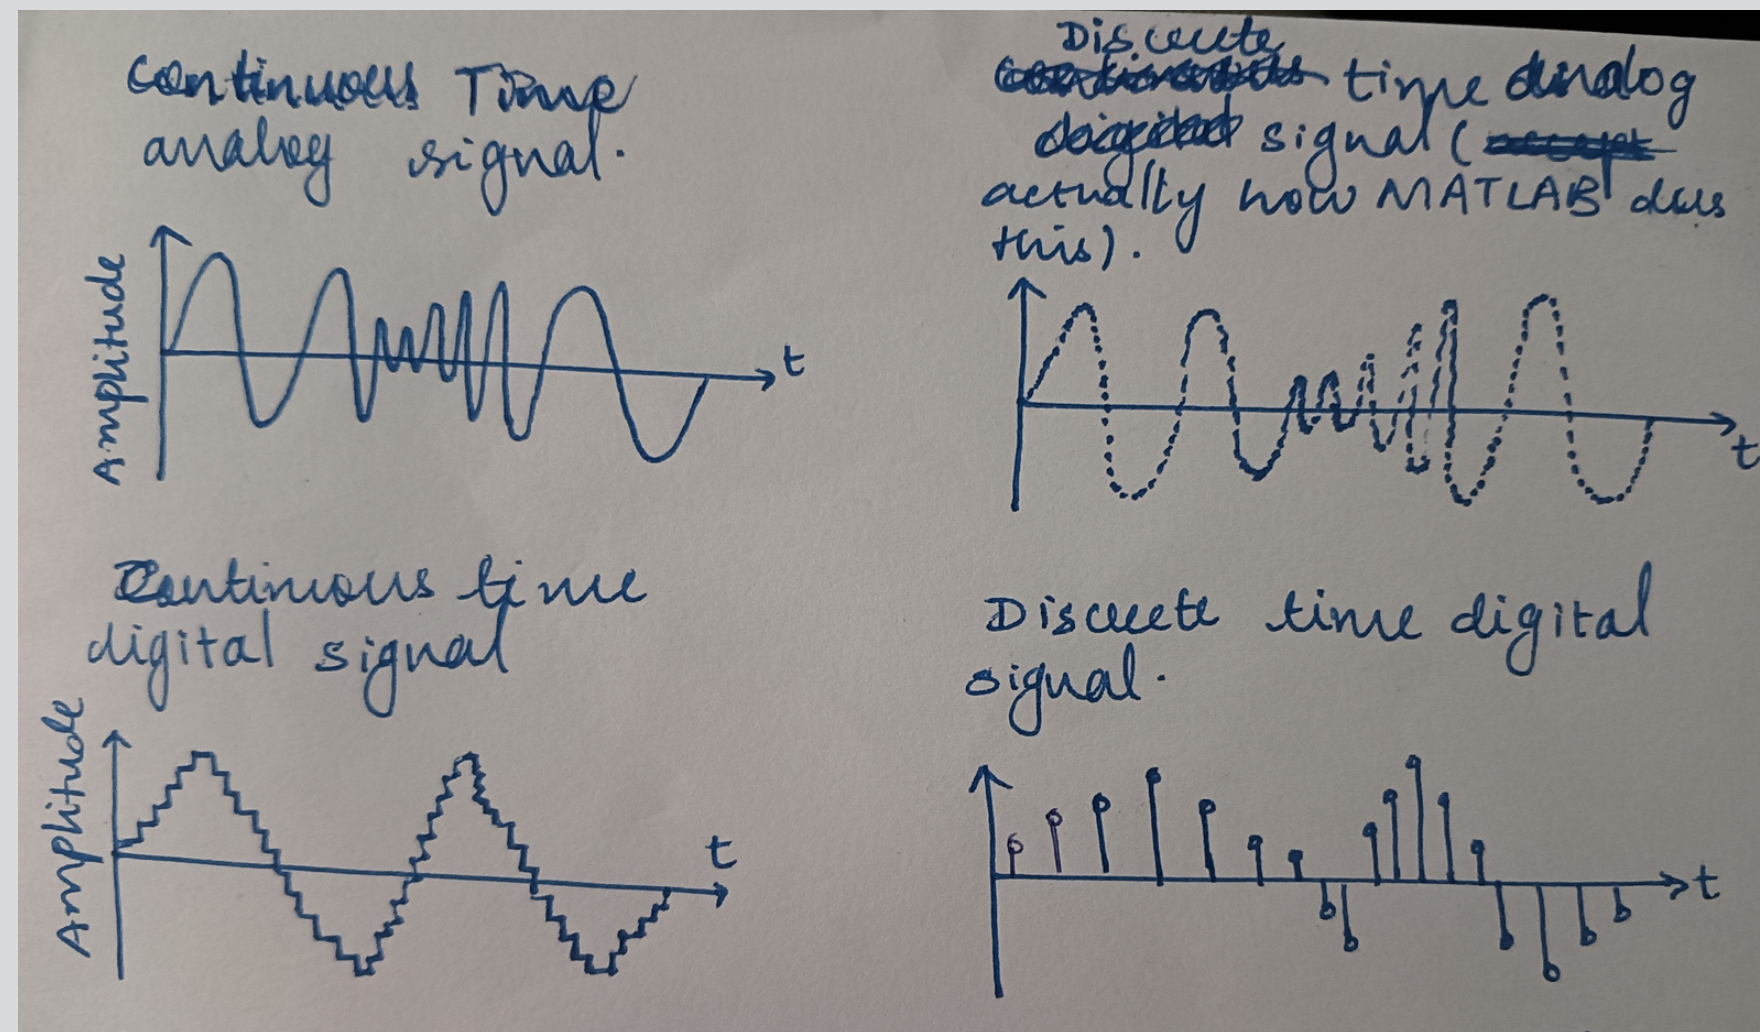 continuous Time
analog signal.
Amplitude
t
Discrete
time analog
signal (
actually how MATLAB does
this).
t
Continuous time
digital signal
Amplitude
t
Discrete time digital
signal.
t